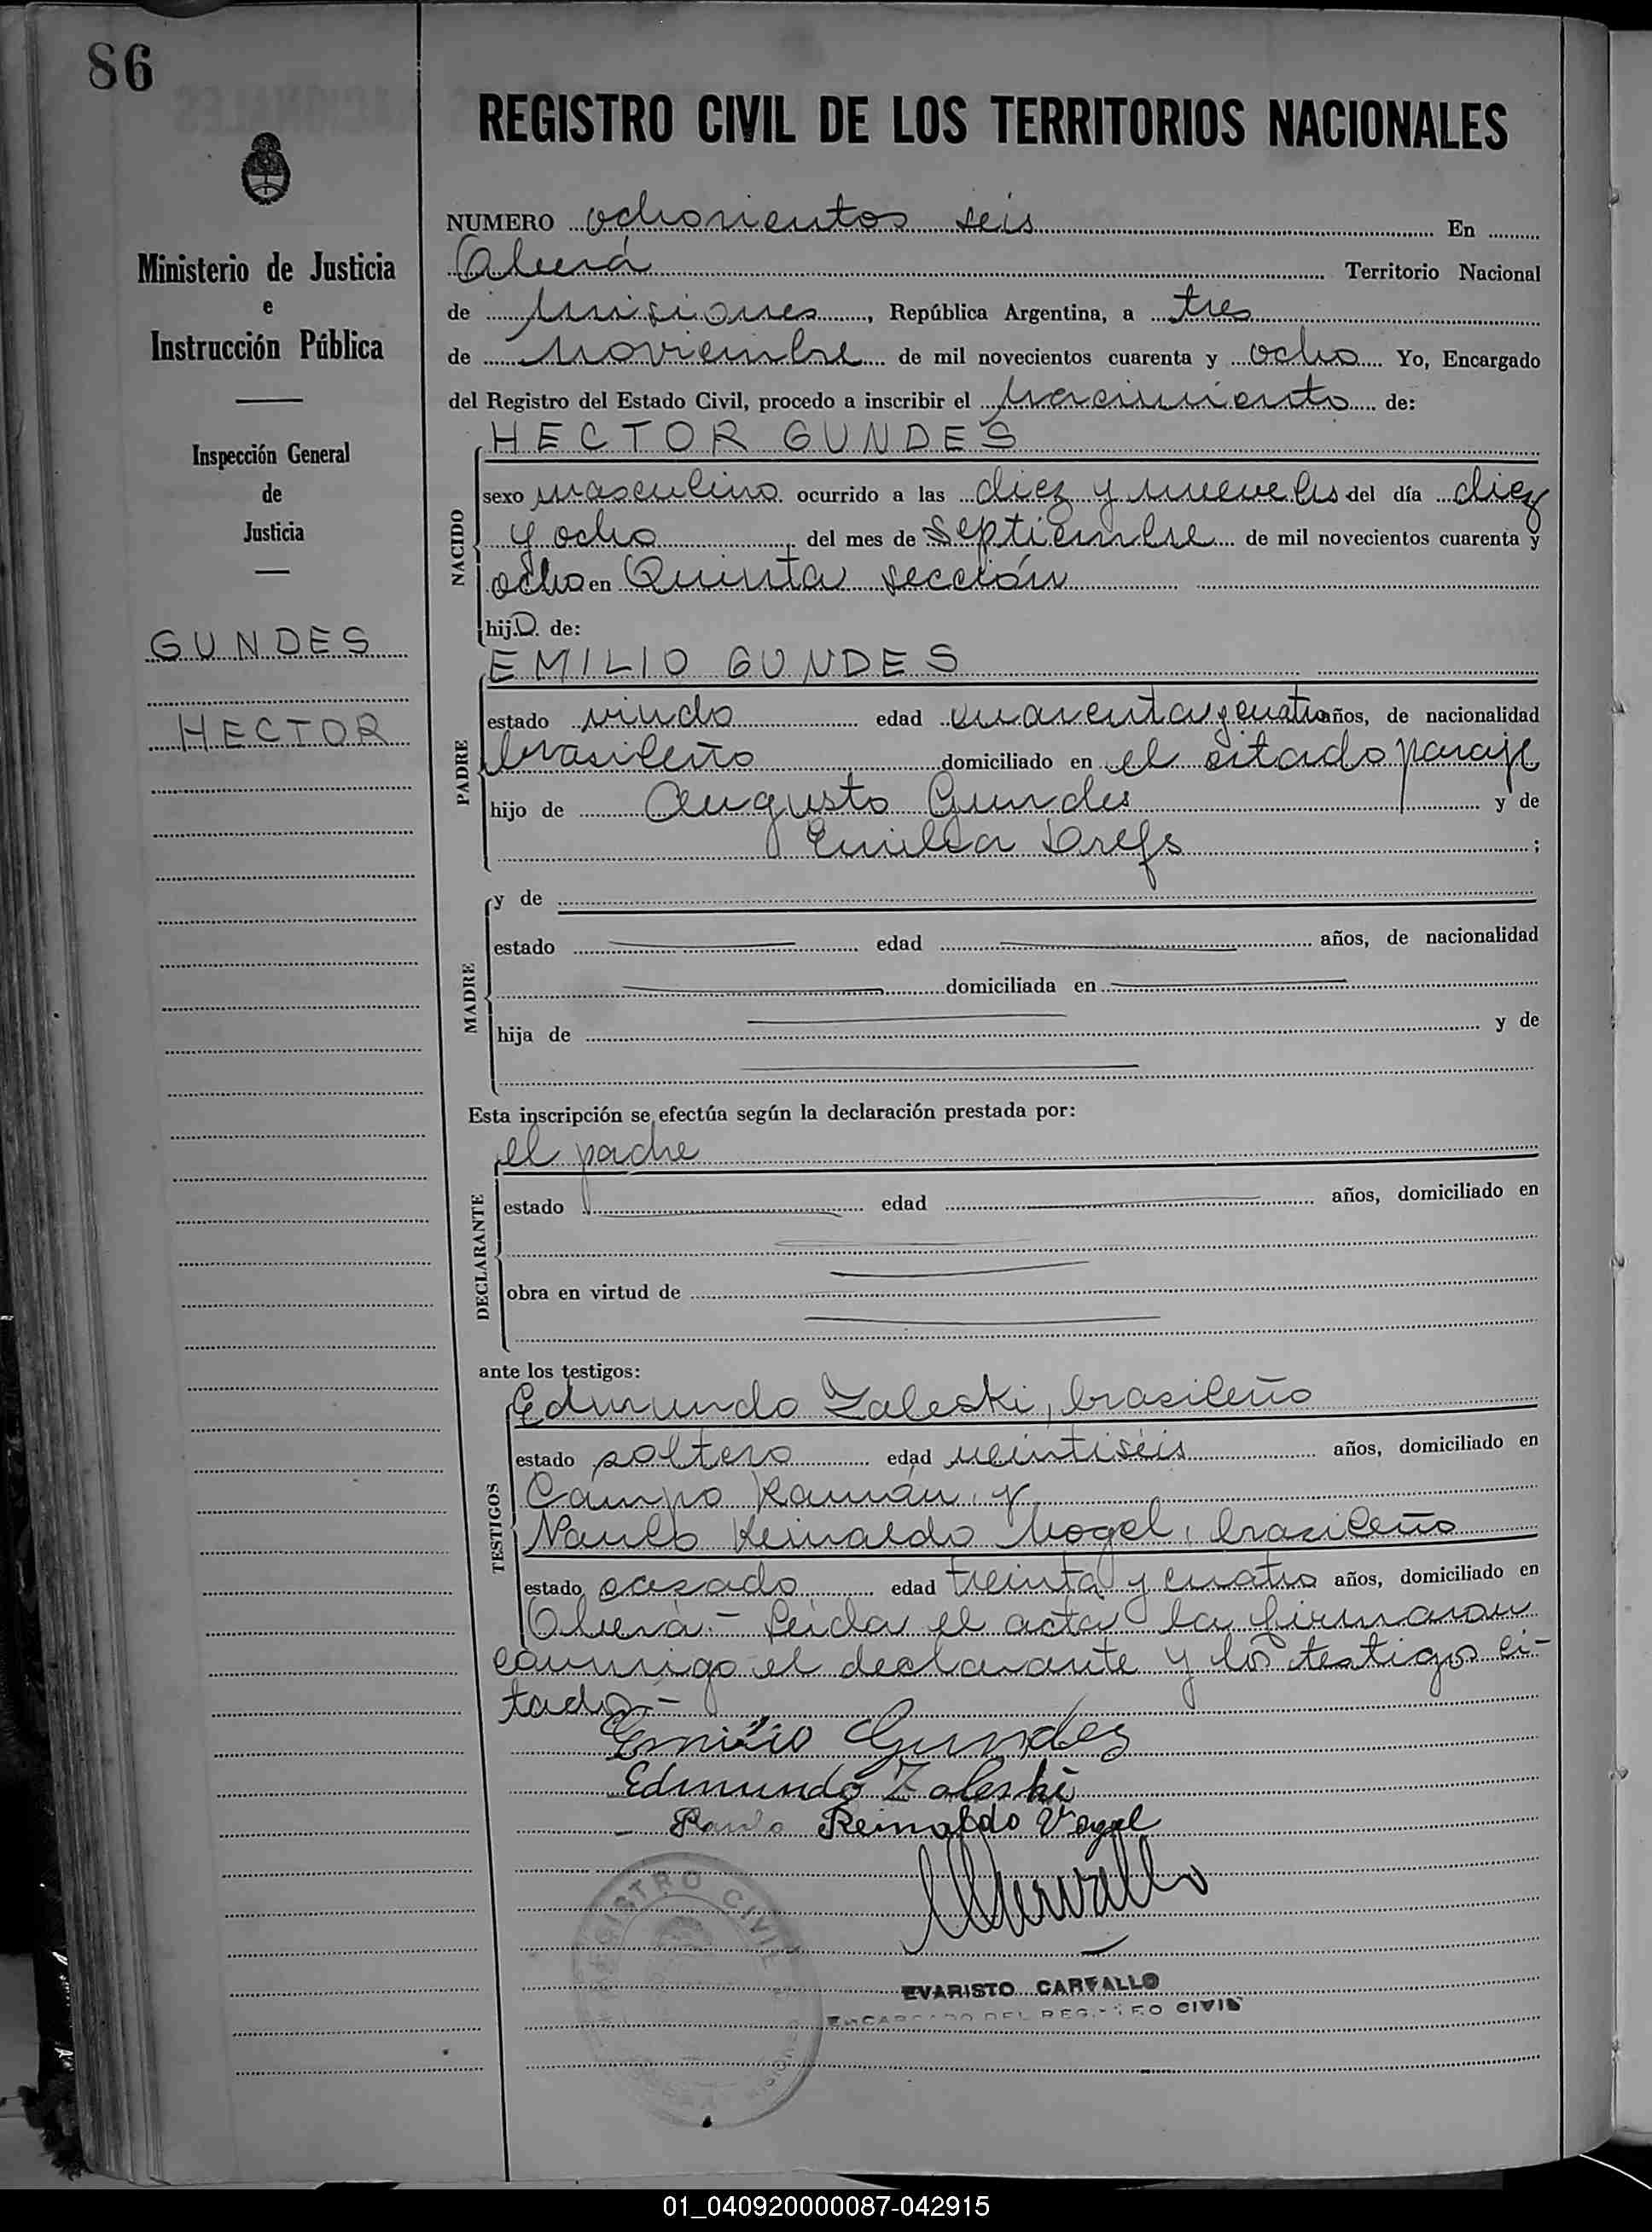 86
REGISTRO CIVIL DE LOS TERRITORIOS NACIONALES
Ministerio de Justicia
e
Instrucción Pública
Inspección General
de
Justicia
GUNDES
HECTOR
NUMERO ochocientos seis En
Oberá Territorio Nacional
de Misiones, República Argentina, a tres
de noviembre de mil novecientos cuarenta y ocho Yo, Encargado
del Registro del Estado Civil, procedo a inscribir el nacimiento de:
HECTOR GUNDES
NACIDO
sexo masculino ocurrido a las diez y nueve hs del día diez
y ocho del mes de septiembre de mil novecientos cuarenta y
ocho en Quinta sección
hijo. de:
EMILIO GUNDES
PADRE
estado viudo edad cuarenta y cuatro años, de nacionalidad
brasileño domiciliado en el citado paraje
hijo de Augusto Gundes y de
Emilia Drefs ;
MADRE
y de
estado edad años, de nacionalidad
domiciliada en
hija de y de
Esta inscripción se efectúa según la declaración prestada por:
el padre
DECLARANTE
estado edad años, domiciliado en
obra en virtud de
ante los testigos:
TESTIGOS
Edmundo Zaleski, brasileño
estado soltero edad veintiséis años, domiciliado en
Campo Ramón y
Paulo Reinaldo Vogel, brasileño
estado casado edad treinta y cuatro años, domiciliado en
Oberá.- Leída el acta la firmaron
conmigo el declarante y los testigos ci-
tados.-
Emilio Gundes
Edmundo Zaleski
Paulo Reinaldo Vogel
REGISTRO CIVIL
EVARISTO CARVALLO
ENCARGADO DEL REGISTRO CIVIL
01_040920000087-042915